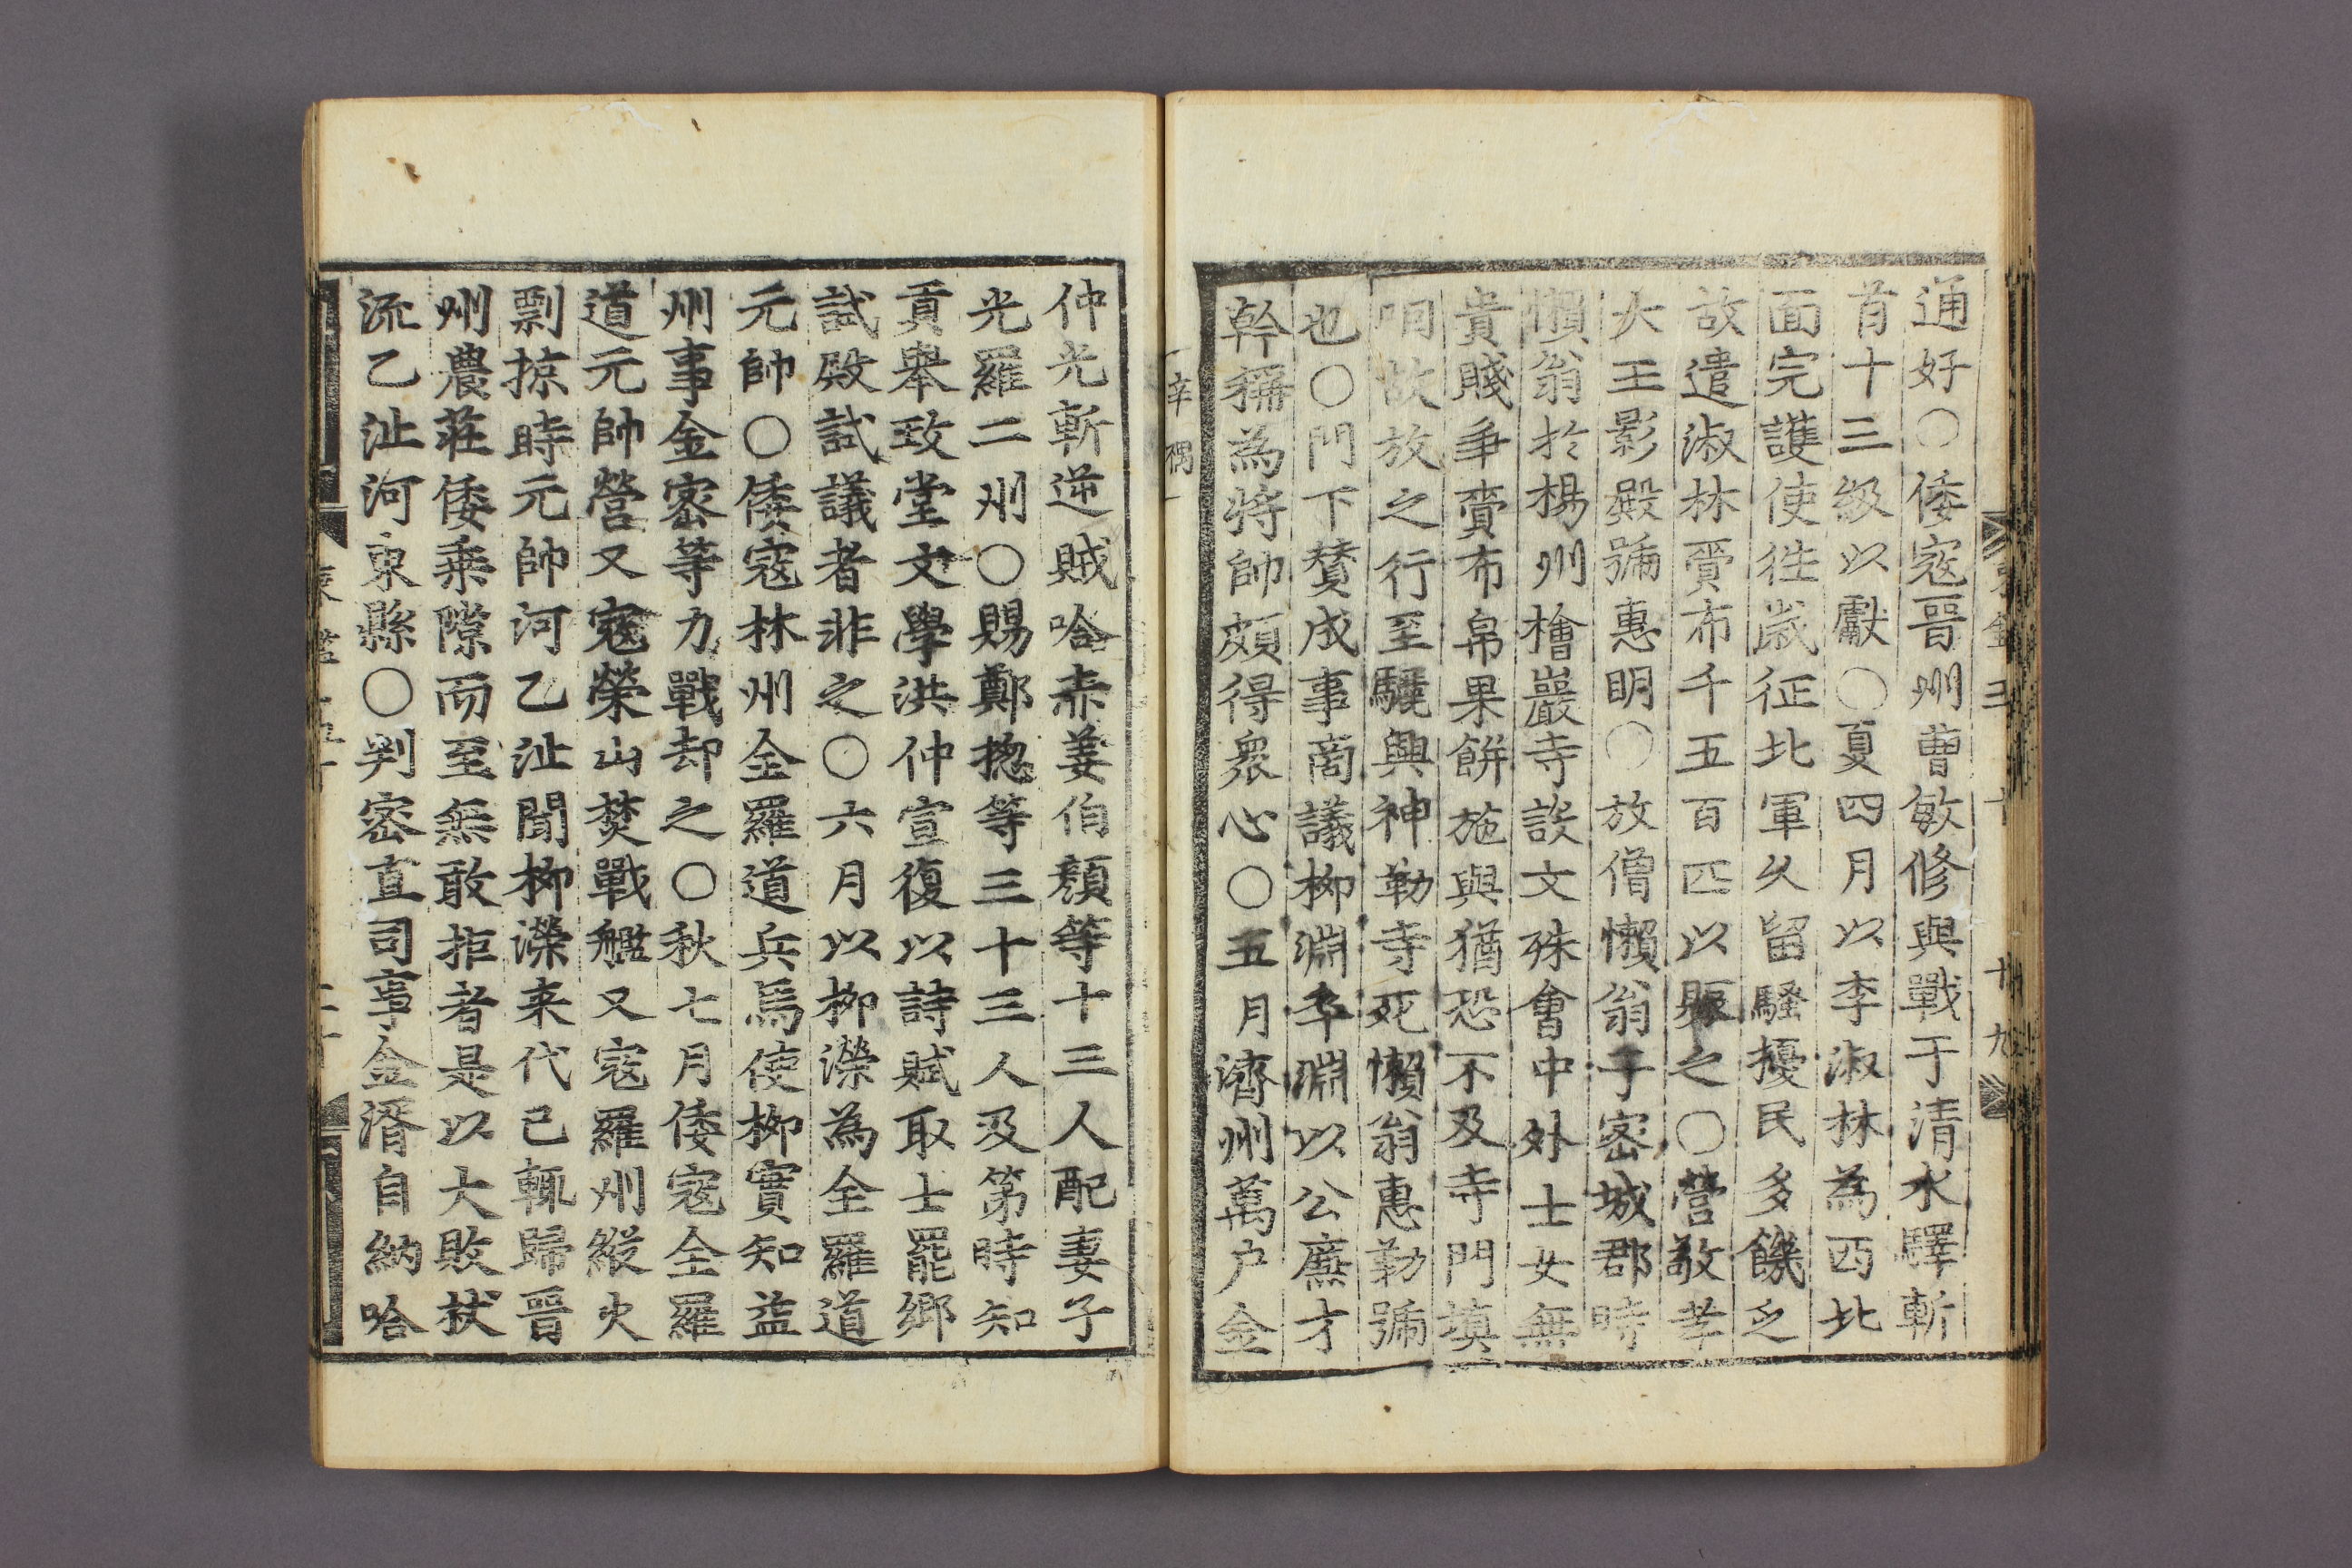 通好○倭寇晋州曹敏修與戰于清水驛斬
首十三級以獻○夏四月以李淑林為西北
面完護使徃歳征北軍久留騷擾民多饑乏
故遣淑林賫布千五百匹以賑之○營敬孝
大王影殿號惠明○放僧懶翁于密城郡時
懶翁於楊州檜巖寺設文殊會中外士女無
貴賤爭賫布帛果餅施與猶恐不及寺門填
咽故放之行至驪興神勒寺死懶翁惠勤號
也○門下賛成事商議柳淵卒淵以公廉才
幹稱為將帥頗得衆心○五月濟州萬户金
辛禑
仲光斬逆賊哈赤姜伯顏等十三人配妻子
光羅二州○賜鄭揔等三十三人及第時知
貢舉政堂文學洪仲宣復以詩賦取士罷鄉
試殿試議者非之○六月以柳濚為全羅道
元帥○倭寇林州全羅道兵馬使柳實知益
州事金密等力戰却之○秋七月倭寇全羅
道元帥營又寇榮山焚戰艦又寇羅州縱火
剽掠時元帥河乙沚聞柳濚来代己輒歸晋
州農莊倭乘隙而至無敢拒者是以大敗杖
流乙沚河東縣○判密直司事金湑自納哈